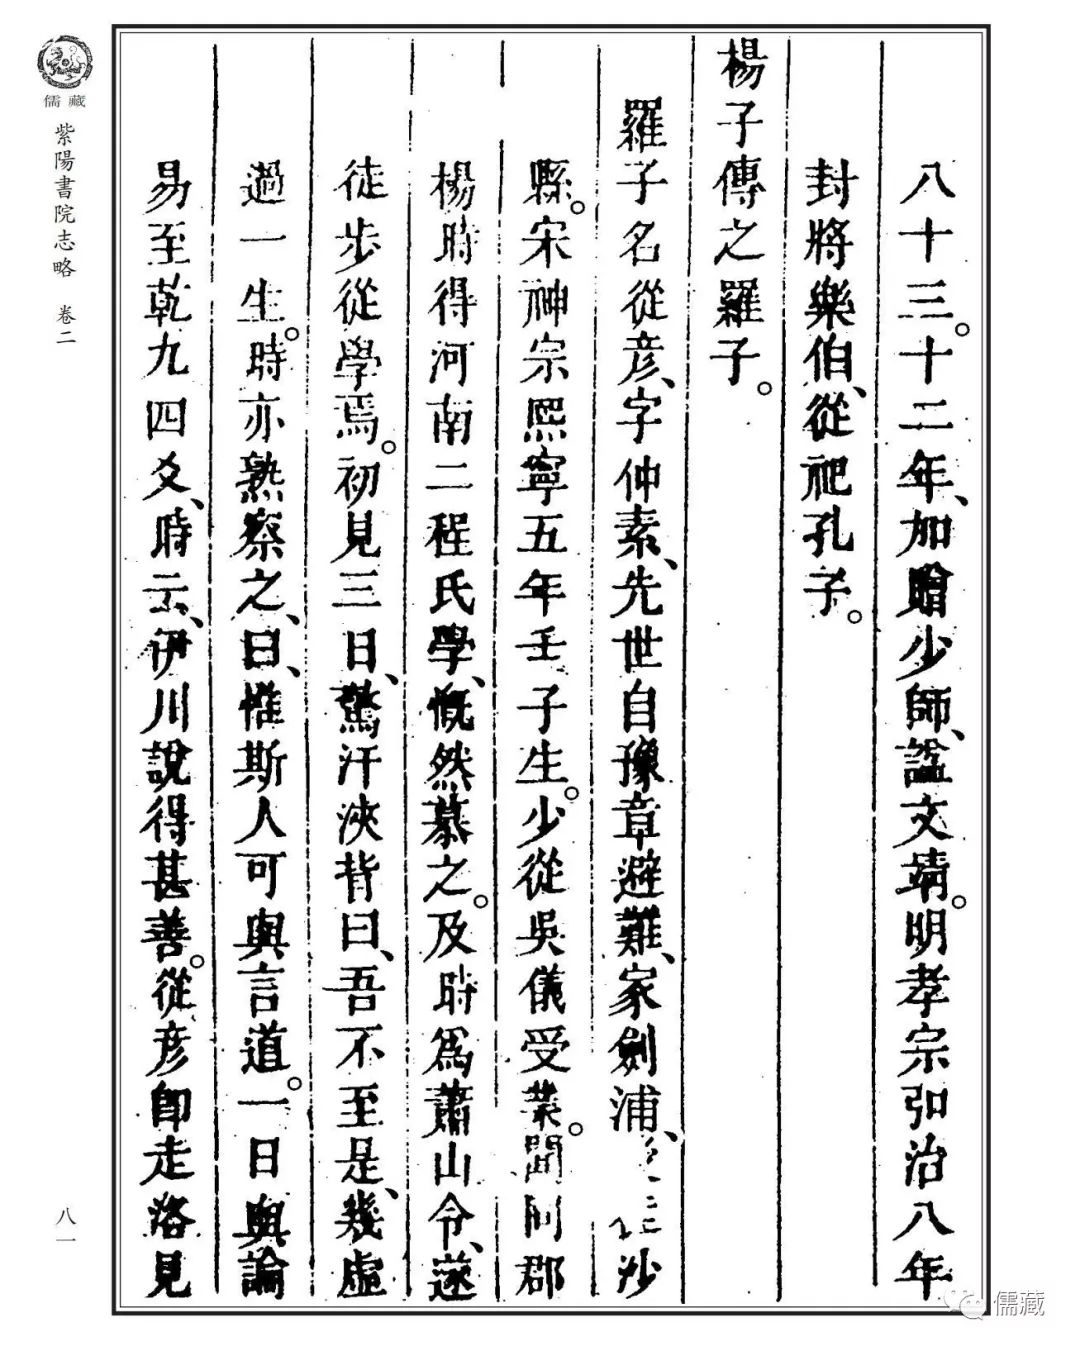 八十三。十二年、加贈少師、諡文靖。明孝宗弘治八年
封將樂伯、從祀孔子。
楊子傳之羅子。
羅子名從彥、字仲素、先世自豫章避難、家劍浦、沙
縣。宋神宗熙寧五年壬子生。少從吳儀受業。聞同郡
楊時得河南二程氏學、慨然慕之。及時爲蕭山令、遂
徒步從學焉。初見三日、驚汗浹背曰、吾不至是、幾虛
過一生。時亦熟察之、曰、惟斯人可與言道。一日與論
易至乾九四爻、時云、伊川說得甚善。從彥卽走洛見
儒藏
紫陽書院志略 卷二
八一
儒藏